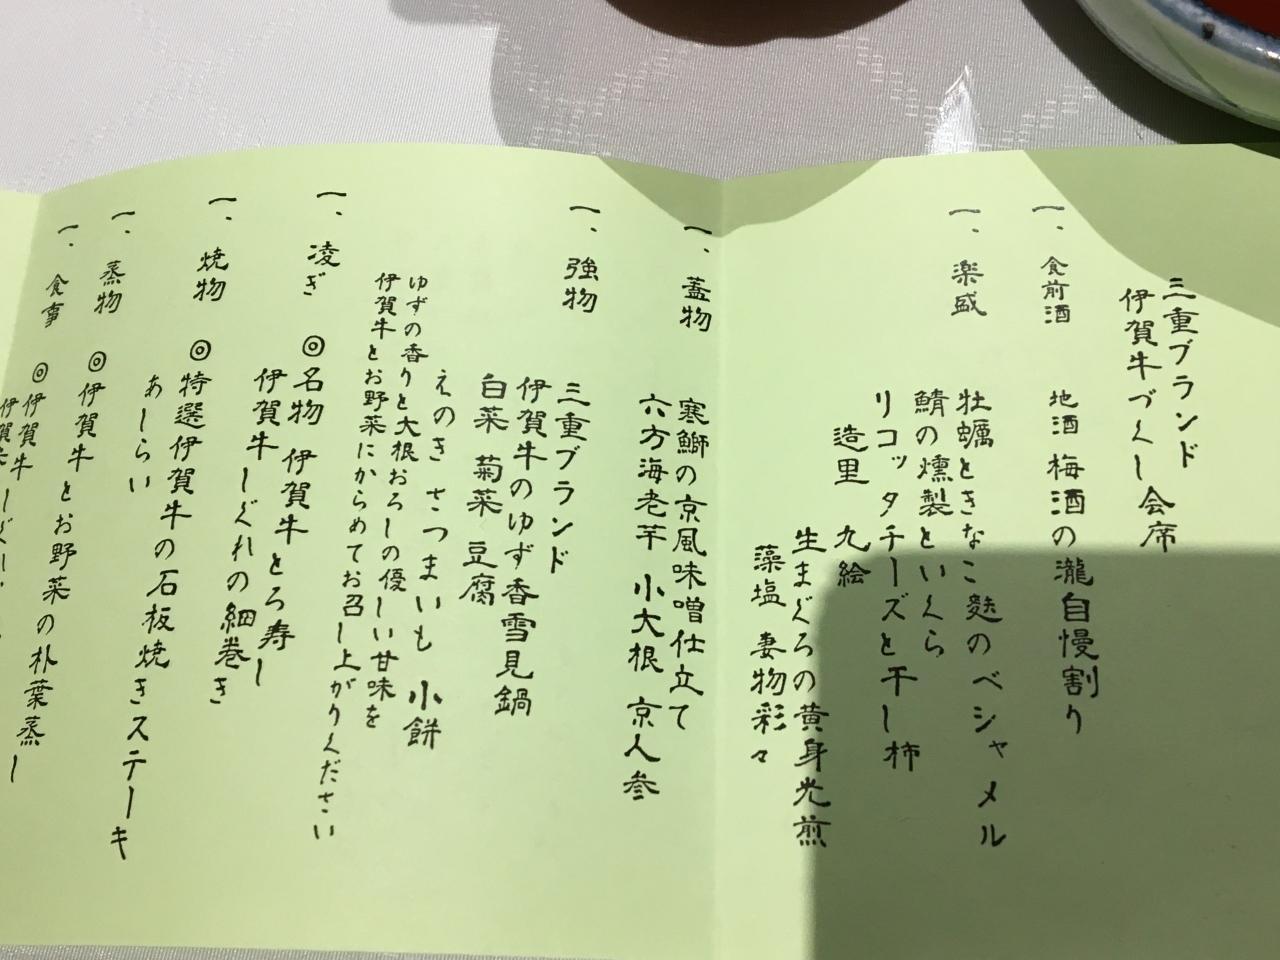 三重ブランド
伊賀牛づくし会席
一、食前酒
地酒 梅酒の瀧自慢割り
一、楽盛
牡蠣ときなこ麩のベシャメル
鯖の燻製といくら
リコッタチーズと干し柿
造里 九絵
生まぐろの黄身光煎
藻塩 妻物彩々
一、蓋物
寒鰤の京風味噌仕立て
六方海老芋 小大根 京人参
一、強物
三重ブランド
伊賀牛のゆず香雪見鍋
白菜 菊菜 豆腐
えのき さつまいも 小餅
ゆずの香りと大根おろしの優しい甘味を
伊賀牛とお野菜にからめてお召し上がりください
一、凌ぎ
◎名物 伊賀牛とろ寿し
伊賀牛しぐれの細巻き
一、焼物
◎特選伊賀牛の石板焼きステーキ
あしらい
一、蒸物
◎伊賀牛とお野菜の朴葉蒸し
一、食事
◎伊賀牛しぐれ
伊賀